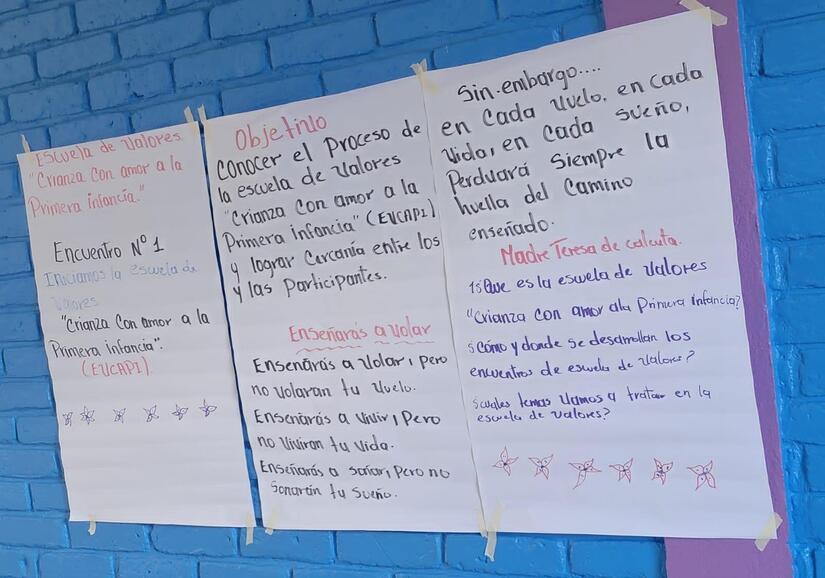 Escuela de Valores
"Crianza Con amor a la
Primera infancia."
Encuentro Nº 1
Iniciamos la escuela de
Valores
"Crianza Con amor a la
Primera infancia".
(EVCAPI)
Objetivo
Conocer el Proceso de
la escuela de Valores
"Crianza Con amor a la
Primera infancia" (EVCAPI)
y lograr Cercanía entre los
y las Participantes.
Enseñarás a Volar
Enseñarás a Volar, pero
no Volaran tu Vuelo.
Enseñarás a Vivir, Pero
no Viviran tu Vida.
Enseñarás a soñar, Pero no
Soñarán tu Sueño.
Sin.embargo....
en Cada Vuelo, en Cada
Vida, en Cada Sueño,
Perduará Siempre la
huella del Camino
enseñado.
Madre Teresa de calcuta.
1¿Que es la escuela de Valores
"Crianza con amor ala Primera Infancia?
¿Cómo y donde se desarrollan los
encuentros de escuela de Valores?
¿Cuales temas Vamos a tratar en la
escuela de Valores?